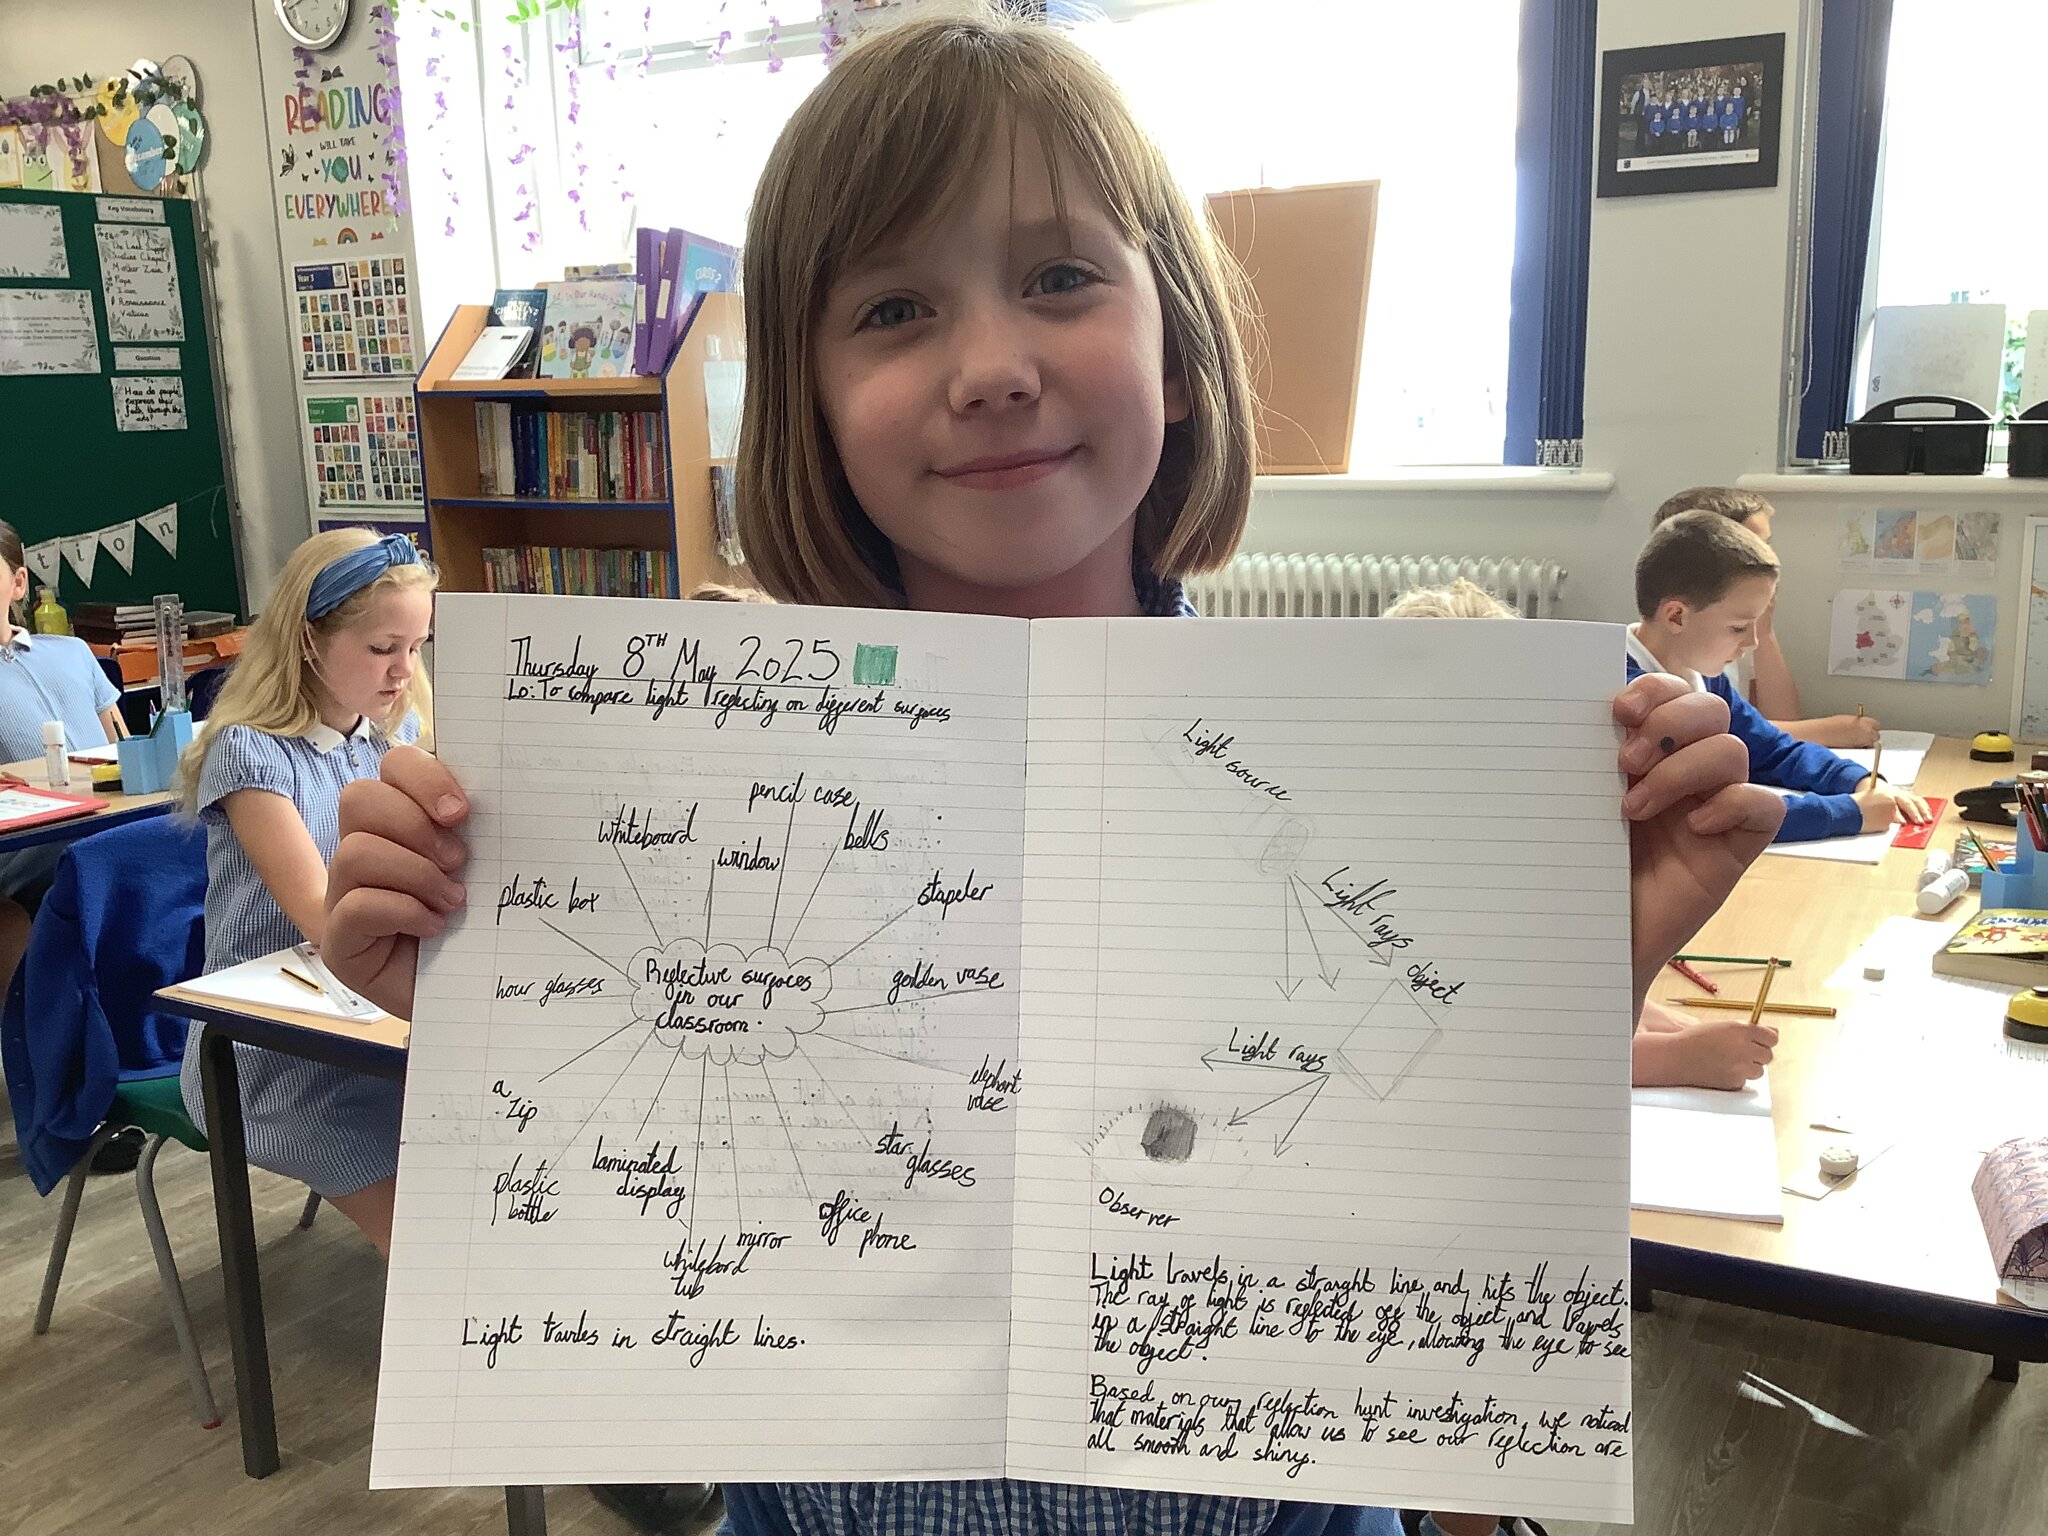 READING
WILL TAKE
YOU
EVERYWHERE
Key Vocabulary
The Last Supper
Sistine Chapel
Pope
Renaissance
Vatican
Question
How do people
express their
faith through the
arts?
tion
Year 3
CLASS 2
In Our Hands
Thursday 8TH May 2025
Lo: To compare light reflecting on different surfaces
pencil case
whiteboard
bells
window
plastic box
stapeler
Reflective surfaces
in our
classroom.
hour glasses
golden vase
a
zip
elephant
vase
laminated
display
star
glasses
plastic
bottle
office
phone
mirror
whitebord
tub
Light travles in straight lines.
Light source
Light rays
object
Light rays
Observer
Light travels in a straight line and hits the object.
The ray of light is reflected off the object and travels
in a straight line to the eye, allowing the eye to see
the object.
Based on our reflection hunt investigation, we noticed
that materials that allow us to see our reflection are
all smooth and shiny.